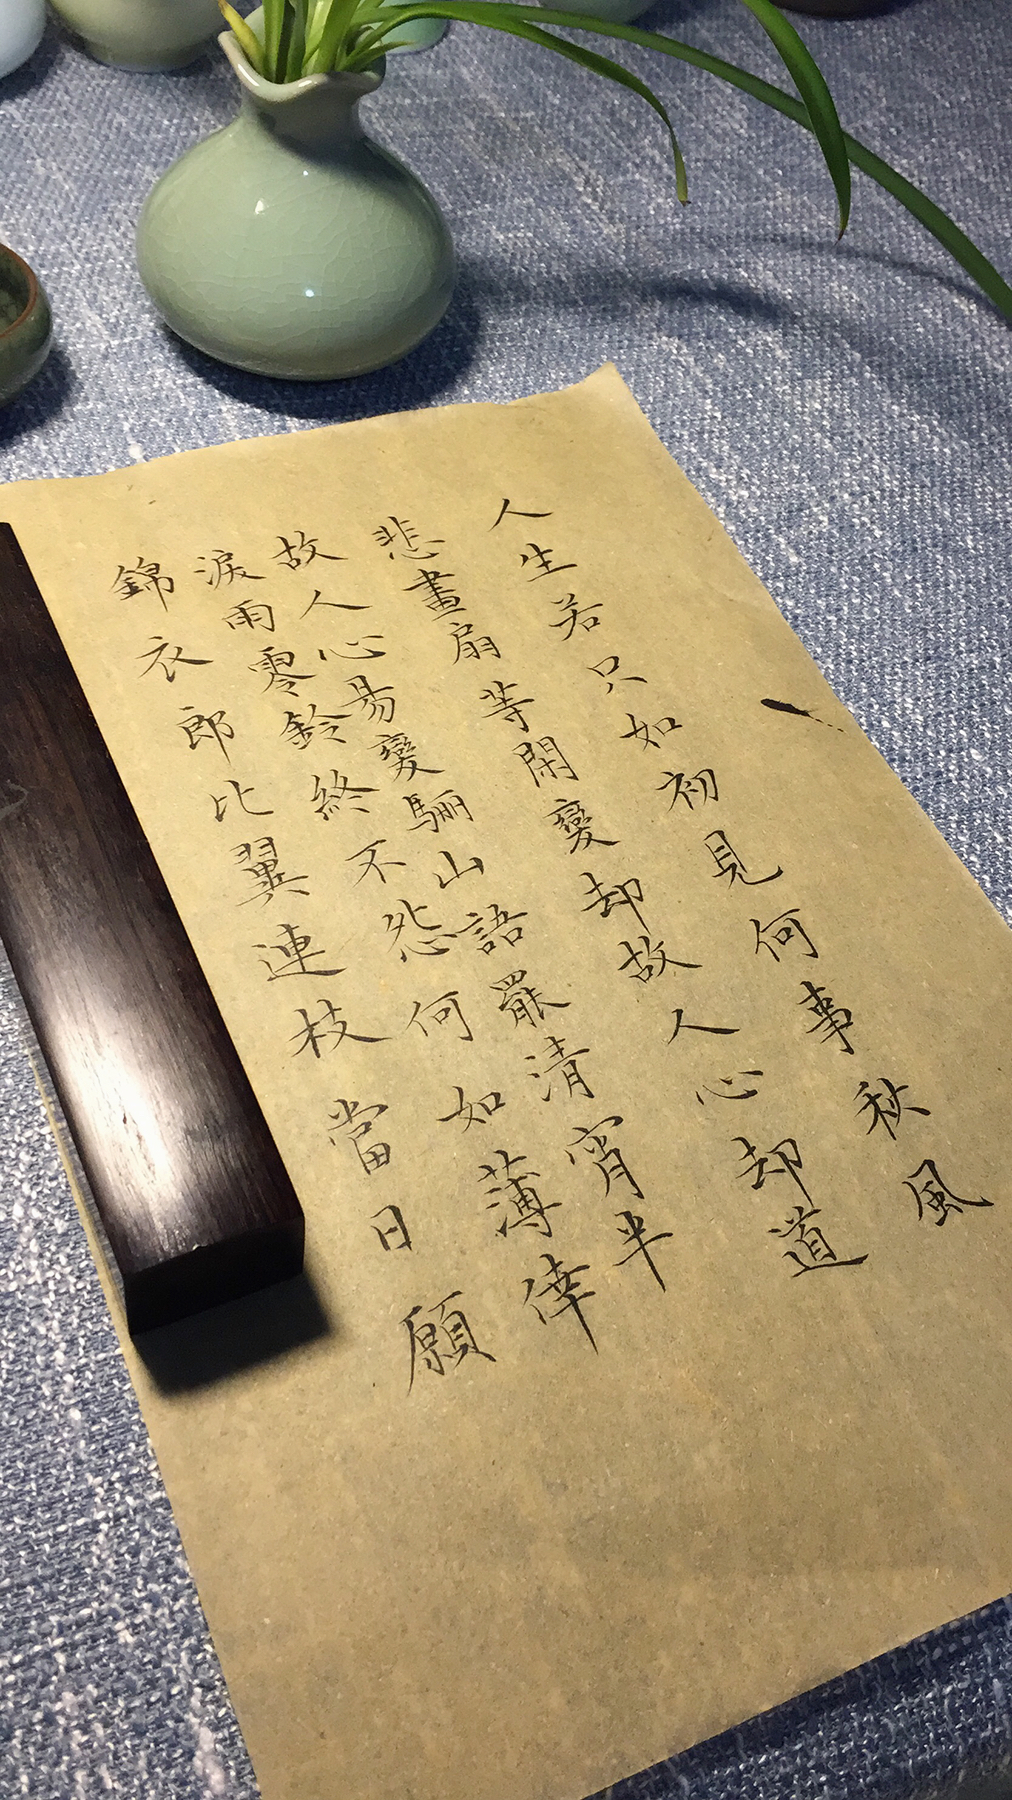 人生若只如初見何事秋風
悲畫扇等閑變却故人心却道
故人心易變驪山語罷清宵半
淚雨零鈴終不怨何如薄倖
錦衣郎比翼連枝當日願